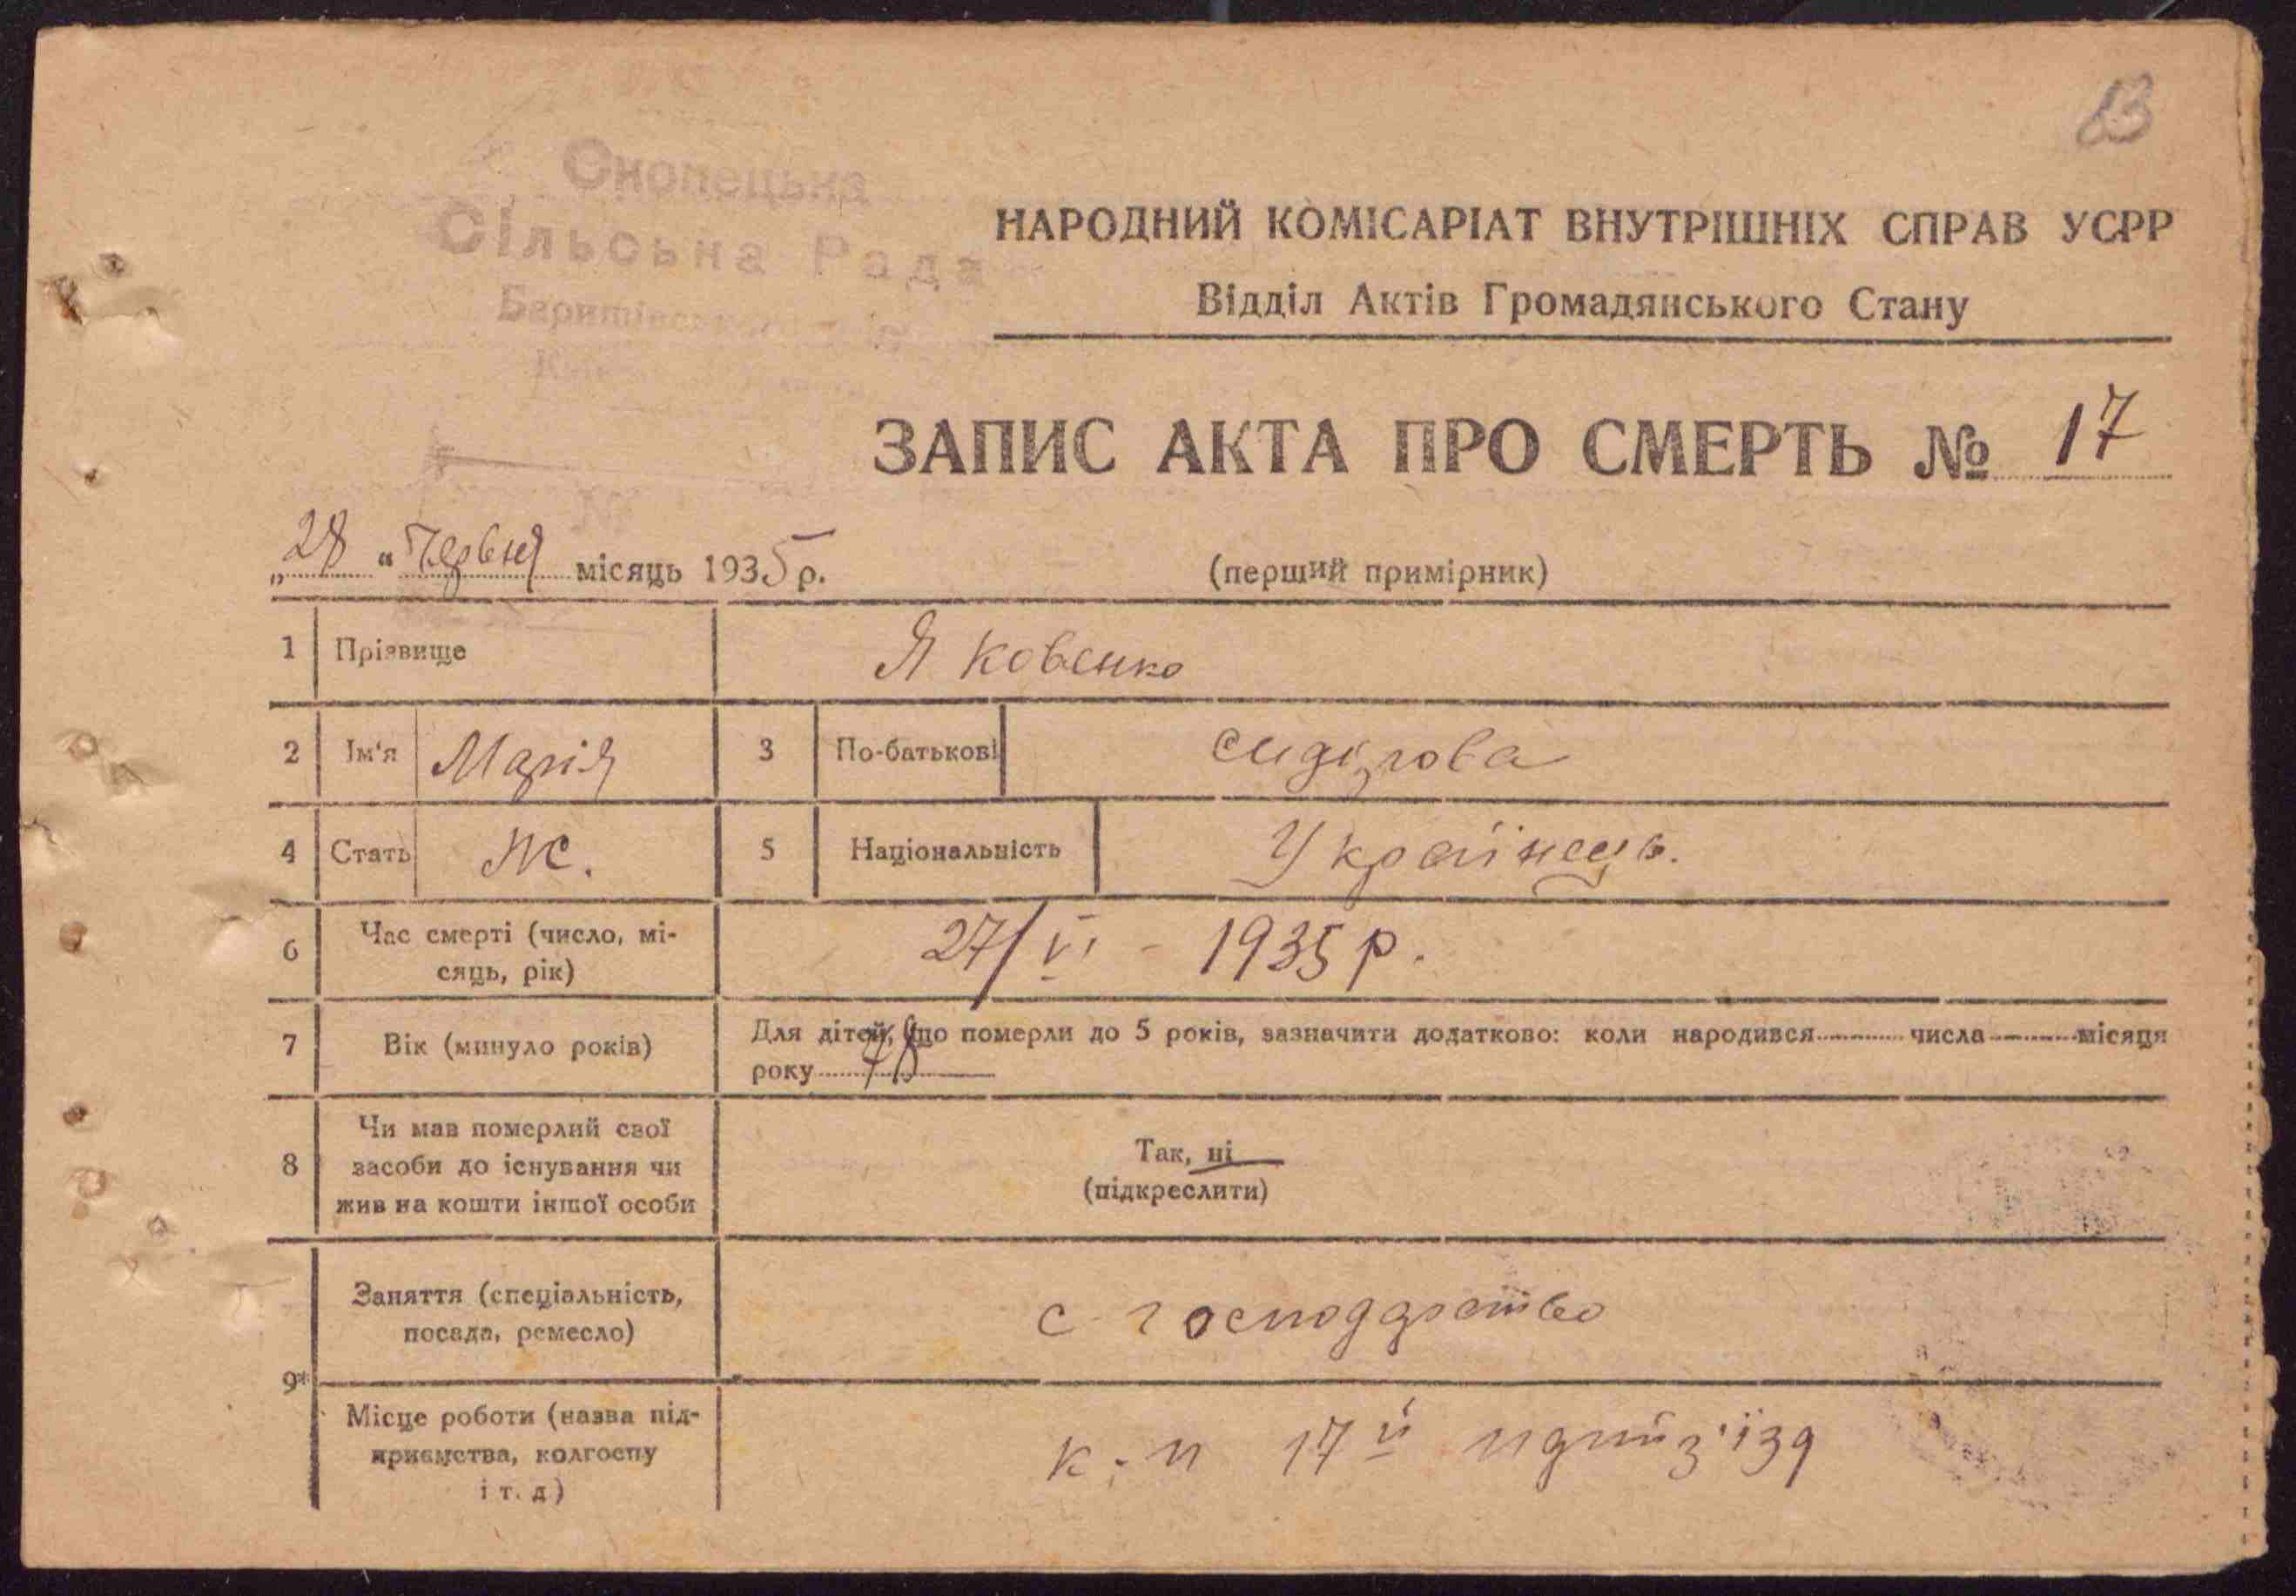 83
Скопецька
Сільська Рада
НАРОДНИЙ КОМІСАРІАТ ВНУТРІШНІХ СПРАВ УСРР
Відділ Актів Громадянського Стану
ЗАПИС АКТА ПРО СМЕРТЬ № 17
„28“ Червня місяць 1935 р.
(перший примірник)
1 Прізвище Яковенко
2 Ім'я Марія 3 По-батькові Сидірова
4 Стать Ж. 5 Національність Українець.
6 Час смерті (число, мі-
сяць, рік) 27/VI - 1935 р.
7 Вік (минуло років) Для дітей, що померли до 5 років, зазначити додатково: коли народився числа місяця
року 78
8 Чи мав померлий свої
засоби до існування чи
жив на кошти іншої особи
Так, ні
(підкреслити)
9* Заняття (спеціальність,
посада, ремесло) с-господарство
Місце роботи (назва під-
приємства, колгоспу
і т. д) 17й з'їзд